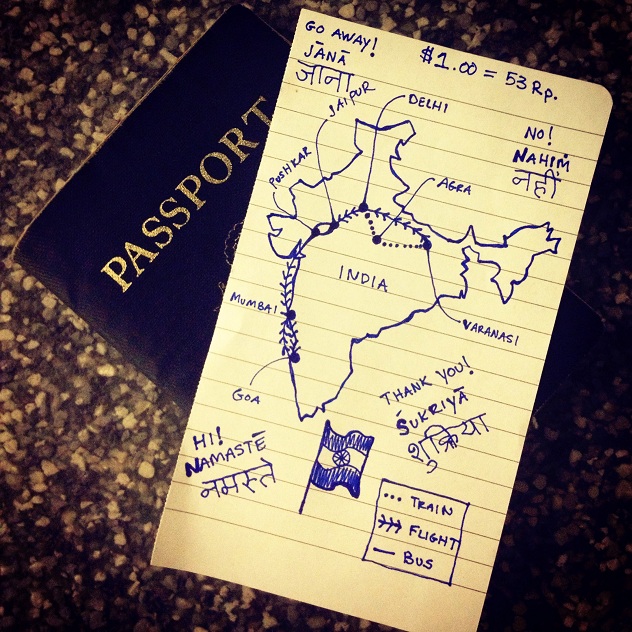 PASSPORT
GO AWAY!
JĀNĀ
जाना
$1.00 = 53 Rp.
NO!
NAHIṂ
नहीं
JAIPUR
DELHI
PUSHKAR
AGRA
INDIA
MUMBAI
VARANASI
GOA
THANK YOU!
ŚUKRIYĀ
शुक्रिया
HI!
NAMASTĒ
नमस्ते
TRAIN
FLIGHT
BUS